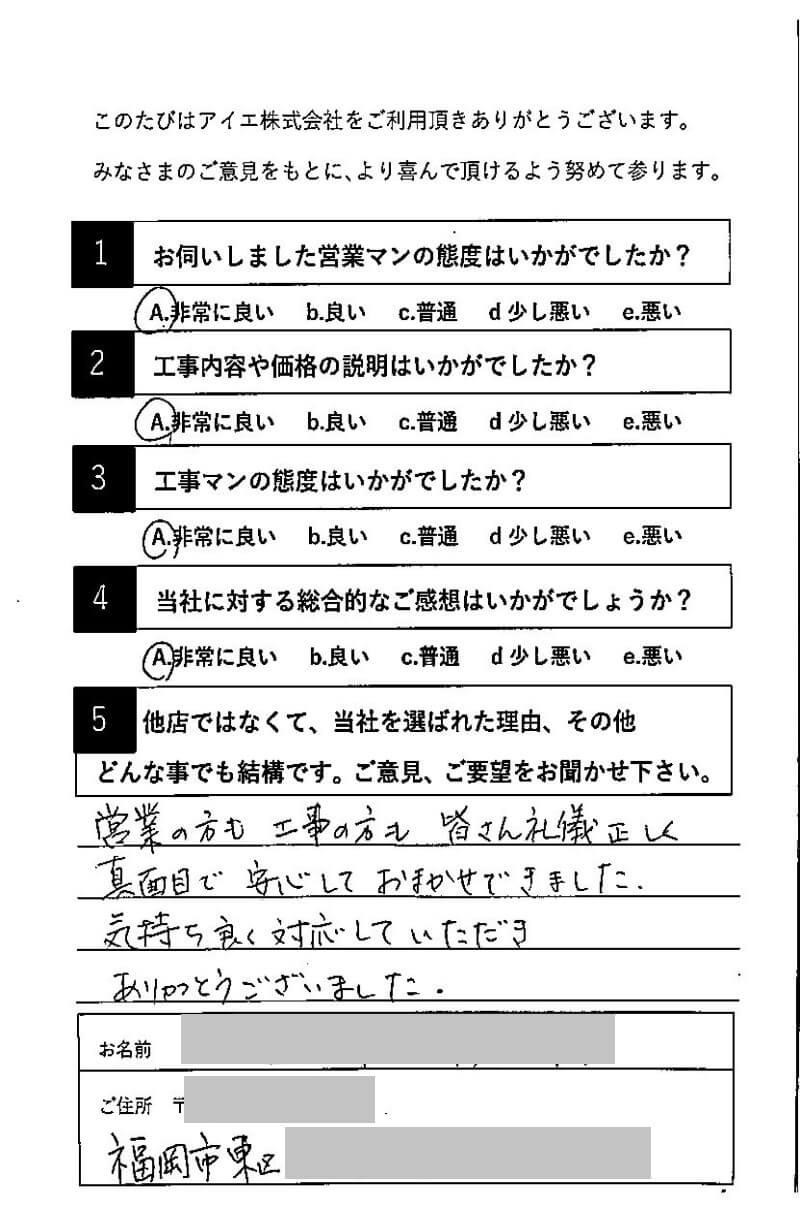 このたびはアイエ株式会社をご利用頂きありがとうございます。
みなさまのご意見をもとに、より喜んで頂けるよう努めて参ります。
1 お伺いしました営業マンの態度はいかがでしたか？
A.非常に良い b.良い c.普通 d 少し悪い e.悪い
2 工事内容や価格の説明はいかがでしたか？
A.非常に良い b.良い c.普通 d 少し悪い e.悪い
3 工事マンの態度はいかがでしたか？
A.非常に良い b.良い c.普通 d 少し悪い e.悪い
4 当社に対する総合的なご感想はいかがでしょうか？
A.非常に良い b.良い c.普通 d 少し悪い e.悪い
5 他店ではなくて、当社を選ばれた理由、その他
どんな事でも結構です。ご意見、ご要望をお聞かせ下さい。
営業の方も 工事の方も 皆さん礼儀正しく
真面目で 安心して おまかせできました.
気持ち良く対応していただき
ありがとうございました.
お名前
ご住所 〒
福岡市東区